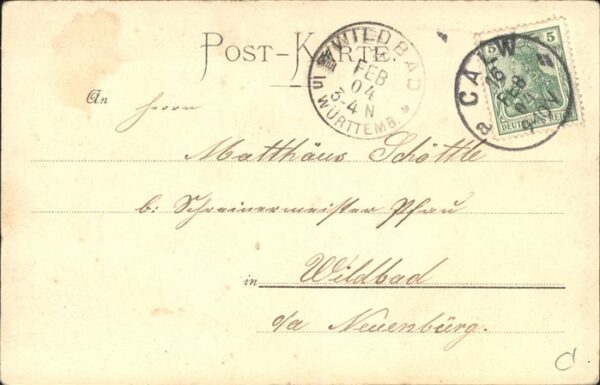 POST-KARTE.
WILDBAD
FEB
04
3-4 N
WÜRTTEMB.
CALW
16
FEB
5
5
DEUTSCHES REICH
An
Herrn
Matthäus Schöttle
b. Schreinermeister Pfau
in Wildbad
o/a Neuenbürg.